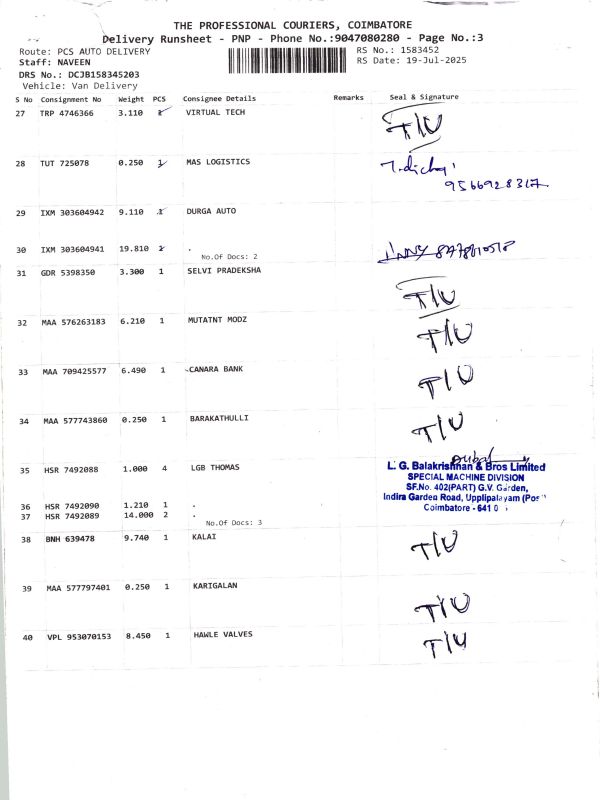 THE PROFESSIONAL COURIERS, COIMBATORE
Delivery Runsheet - PNP - Phone No.:9047080280 - Page No.:3
Route: PCS AUTO DELIVERY
RS No.: 1583452
Staff: NAVEEN
RS Date: 19-Jul-2025
DRS No.: DCJB158345203
Vehicle: Van Delivery
S No Consignment No Weight PCS Consignee Details Remarks Seal & Signature
27 TRP 4746366 3.110 VIRTUAL TECH T/U
28 TUT 725078 0.250 1 MAS LOGISTICS
9566928317
29 IXM 303604942 9.110 DURGA AUTO
30 IXM 303604941 19.810 2 .
No.Of Docs: 2
31 GDR 5398350 3.300 1 SELVI PRADEKSHA T/U
32 MAA 576263183 6.210 1 MUTATNT MODZ T/U
33 MAA 709425577 6.490 1 CANARA BANK T/U
34 MAA 577743860 0.250 1 BARAKATHULLI T/U
35 HSR 7492088 1.000 4 LGB THOMAS
L. G. Balakrishnan & Bros Limited
SPECIAL MACHINE DIVISION
SF.No. 402(PART) G.V. Garden,
Indira Garden Road, Upplipalayam (Pos
Coimbatore - 641 0
36 HSR 7492090 1.210 1 .
37 HSR 7492089 14.000 2 .
No.Of Docs: 3
38 BNH 639478 9.740 1 KALAI T/U
39 MAA 577797401 0.250 1 KARIGALAN T/U
40 VPL 953070153 8.450 1 HAWLE VALVES T/U